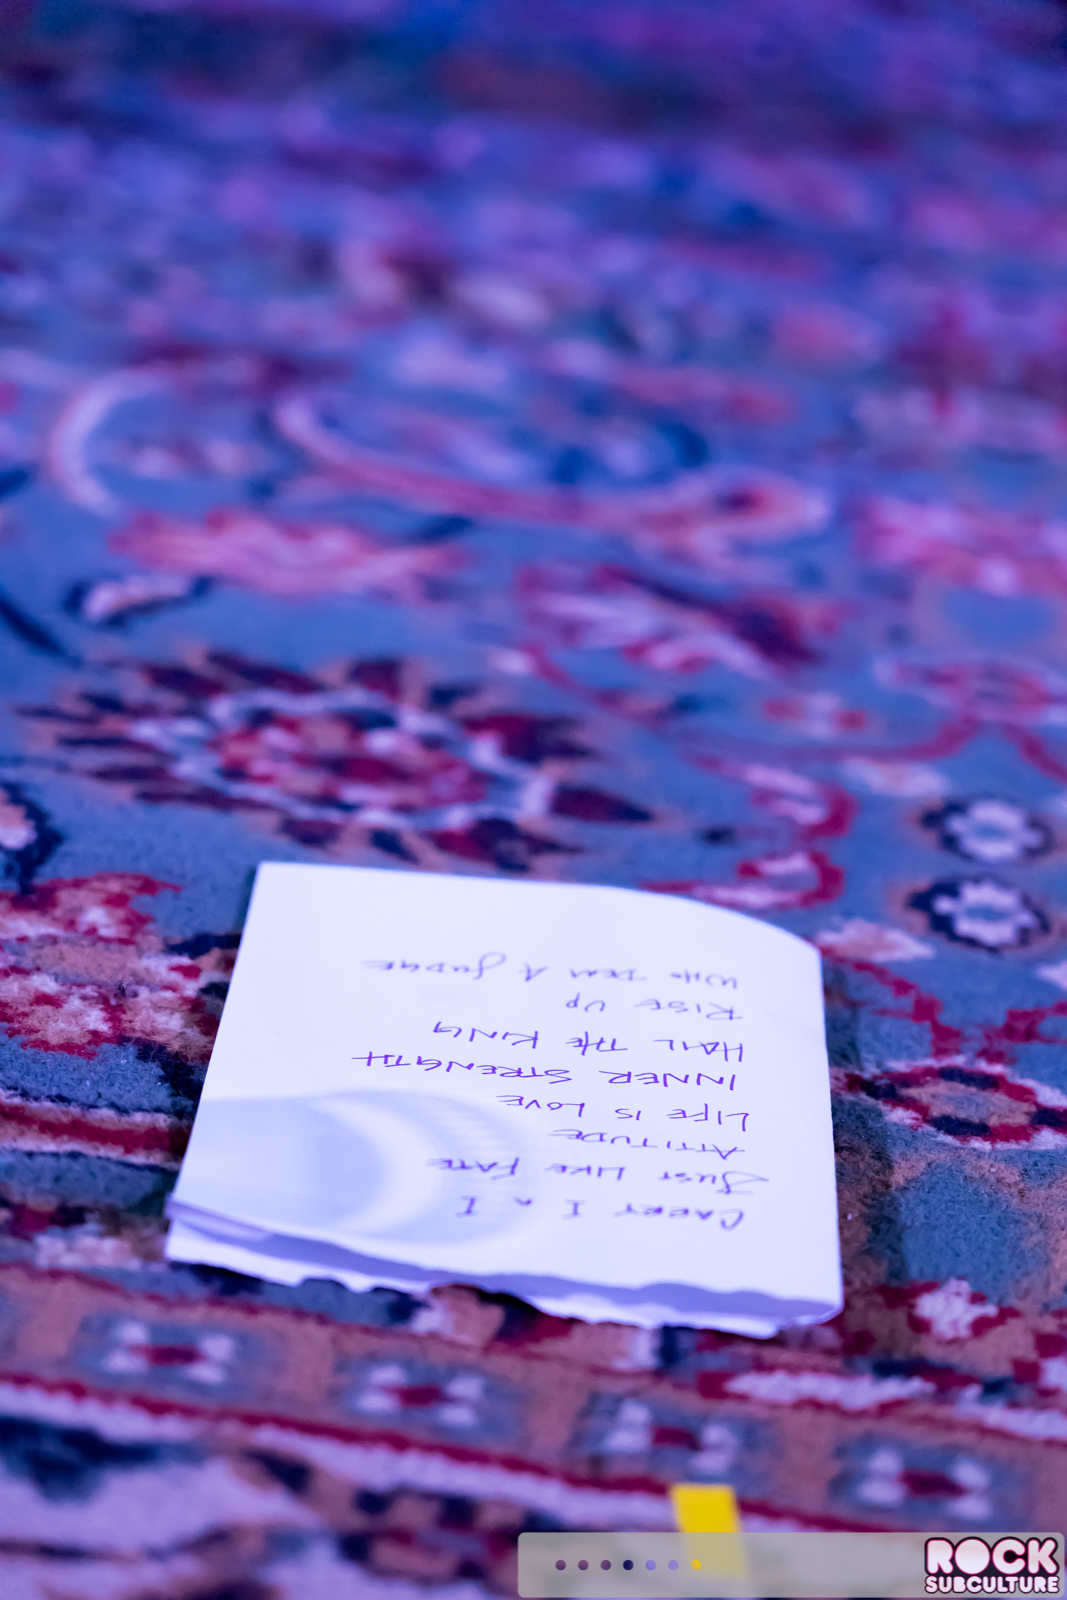 CARRY I N I
JUST LIKE FATE
ATTITUDE
LIFE IS LOVE
INNER STRENGTH
HAIL THE KING
RISE UP
WHO DEM A JUDGE
ROCK
SUBCULTURE